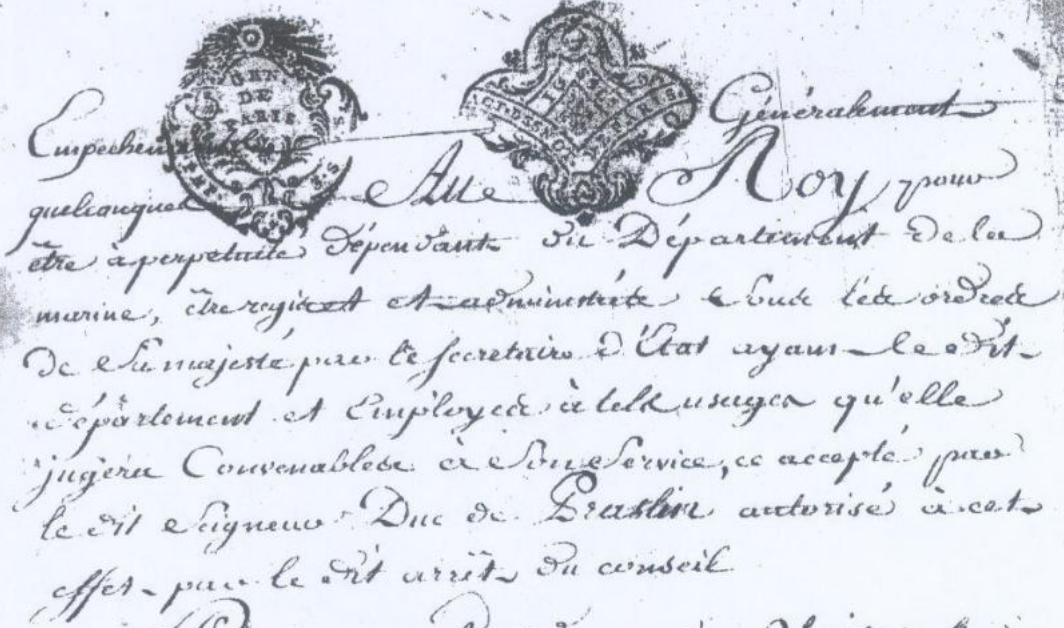 GEN
DE
PARIS
ACT. DES NOT. PARIS.
Généralement
Empechemens
quelconques Au Roy, pour
être à perpetuité dépendant du Département de la
marine, être regis et administrés Sous les ordres
de Sa majesté par le Secretaire d'État ayant le dit
département et Employés à tels usages qu'elle
jugera Convenables à Son Service, ce accepté par
le dit Seigneur Duc de Praslin autorisé à cet
effet par le dit arrêt du conseil